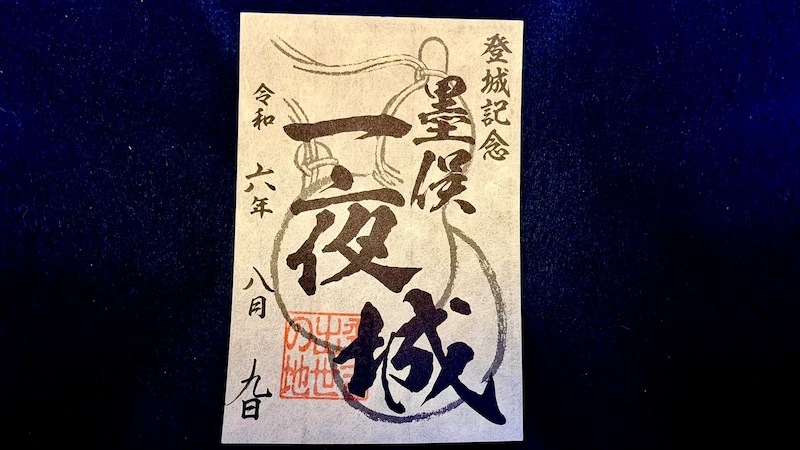 登城記念
墨俣
一夜城
令和六年八月九日
出世
の地